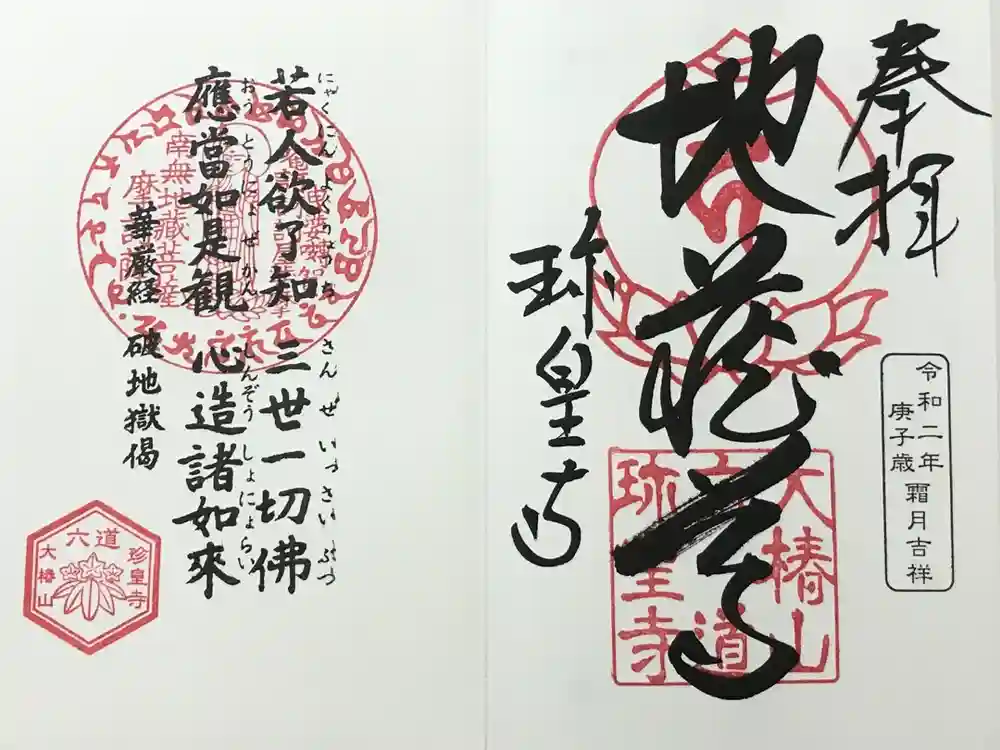 奉拝
地蔵尊
珎皇寺
令和二年 霜月吉祥
庚子歳
大椿山
六道
珎皇寺
にゃくにん よくりょうち さんぜ いっさいぶつ
若人欲了知 三世一切佛
おうとうにょぜかん しんぞうしょにょらい
應當如是観 心造諸如來
華厳経 破地獄偈
南無地蔵菩薩
六道
珍皇寺
大椿山